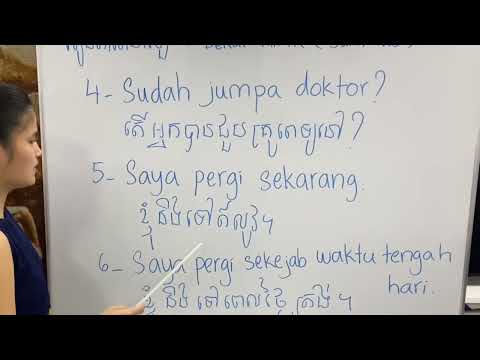 4- Sudah jumpa doktor?
តើអ្នកបានជួបគ្រូពេទ្យនៅ?
5- Saya pergi sekarang.
ខ្ញុំនឹងទៅឥលូវ។
6- Saya pergi sekejab waktu tengah
hari.
ខ្ញុំ នឹង ទៅ ពេលថ្ងៃ ត្រង់ ។